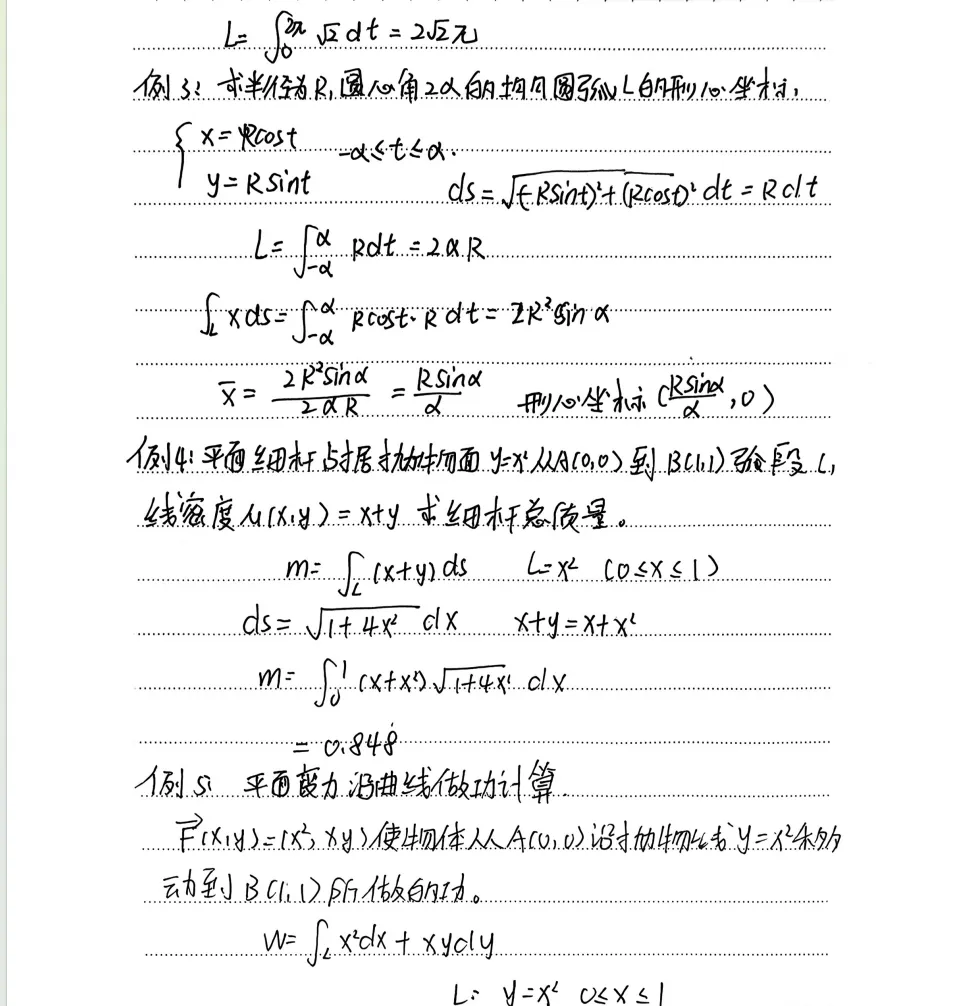 L= ∫₀^{2π} √2 dt = 2√2π
例3: 求半径为R,圆心角2α的均匀圆弧L的形心坐标,
{ x = Rcost
y = Rsint -α≤t≤α. ds = √((-Rsint)²+(Rcost)²) dt = Rdt
L= ∫_{-α}^{α} Rdt = 2αR
∫_L xds = ∫_{-α}^{α} Rcost·R dt = 2R²sinα
x̄ = 2R²sinα / 2αR = Rsinα / α 形心坐标 (Rsinα/α, 0)
例4: 平面细杆占据抛物面 y=x² 从A(0,0) 到 B(1,1) 弧段 L,
线密度 μ(x,y) = x+y 求细杆总质量。
m= ∫_L (x+y) ds L=x² (0≤x≤1)
ds = √(1+4x²) dx x+y = x+x²
m= ∫₀¹ (x+x²) √(1+4x²) dx
= 0.848
例5: 平面变力沿曲线做功计算.
F⃗(x,y)=(x², xy) 使物体从A(0,0)沿抛物线 y=x² 移
动到 B(1,1) 所做的功。
W= ∫_L x²dx + xydy
L: y=x² 0≤x≤1